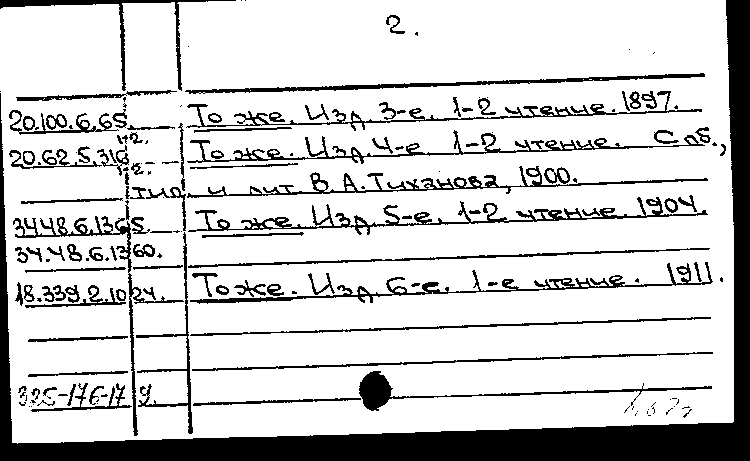 2.
20.100.6.65. То же. Изд. 3-е. 1-2 чтение. 1897.
1-2.
20.62.5.316 То же. Изд. 4-е. 1-2 чтение. Спб.,
1-2.
тип. и лит. В. А. Тиханова, 1900.
34.48.6.1365. То же. Изд. 5-е. 1-2 чтение. 1904.
34.48.6.1360.
18.339.2.1024. То же. Изд. 6-е. 1-е чтение. 1911.
325-176-179.